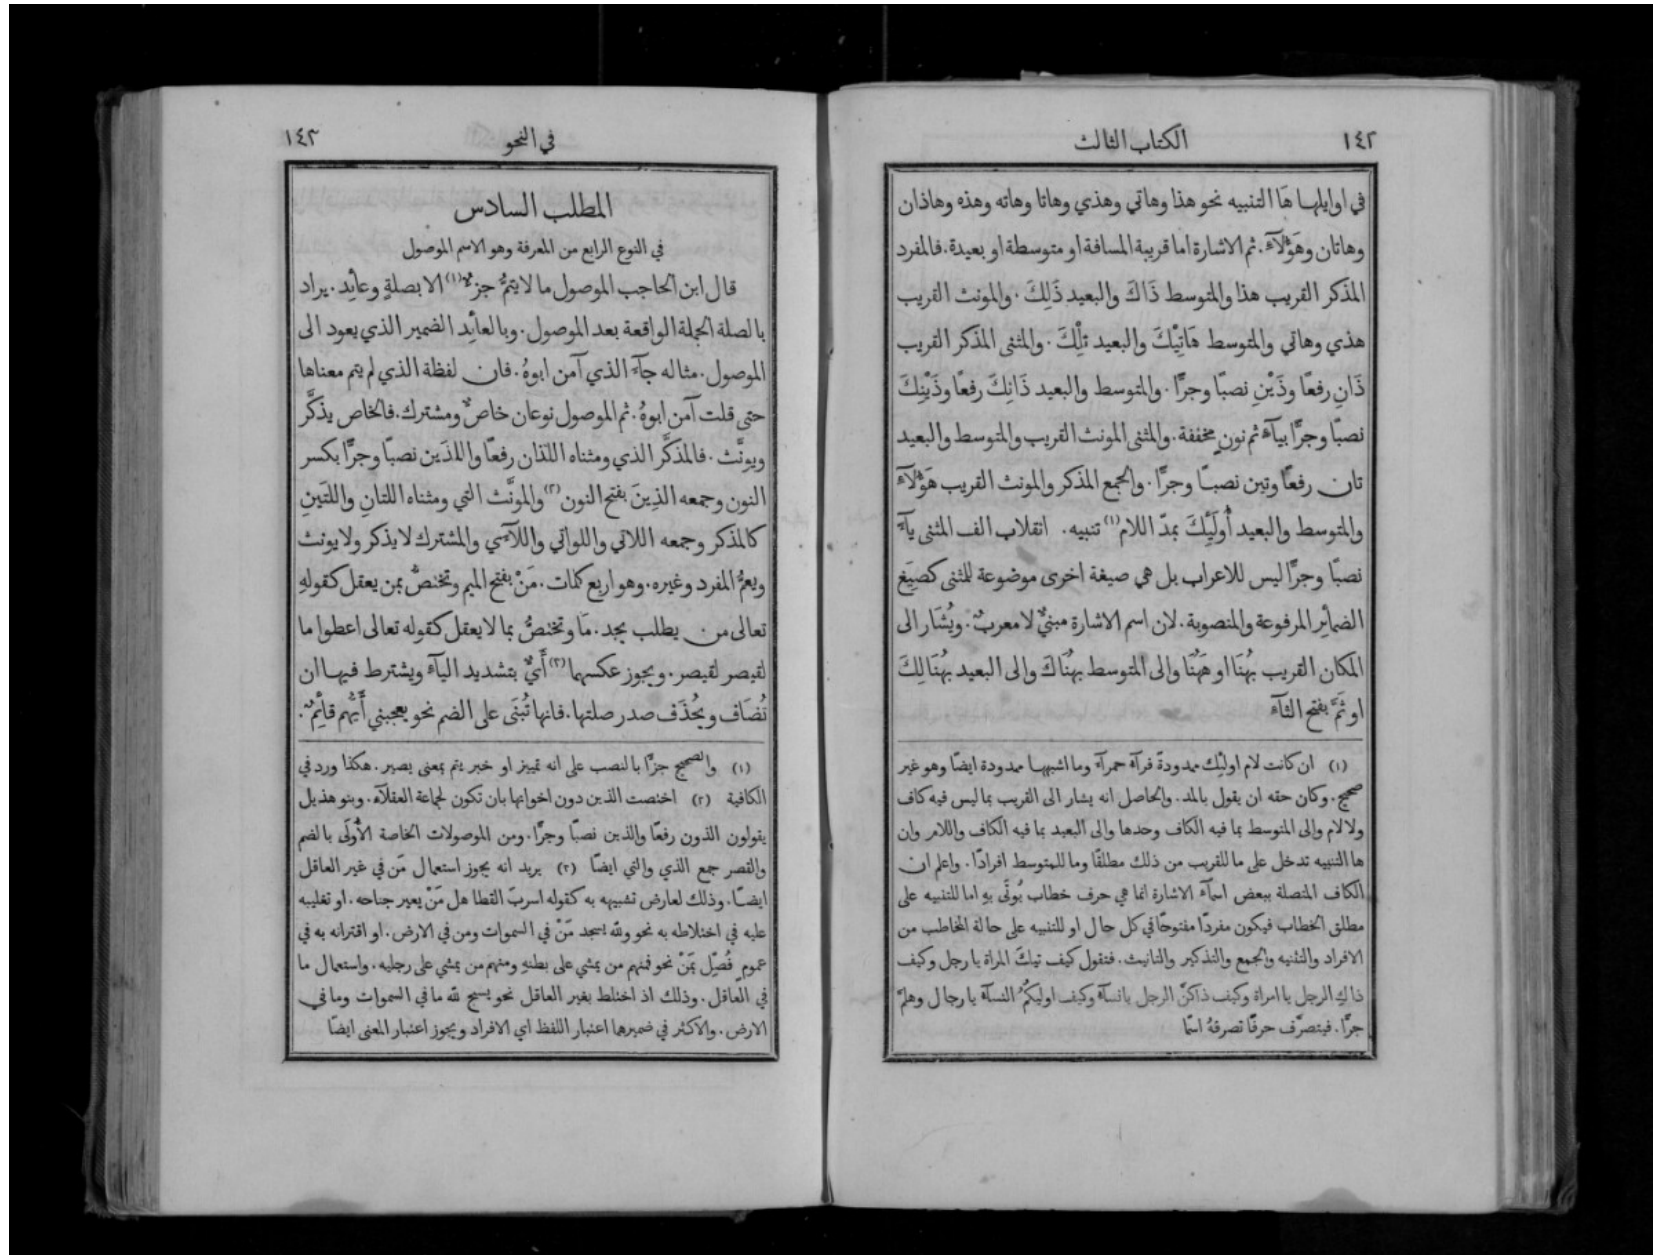 ١٤٢
الكتاب الثالث
في اوايلها هَا التنبيه نحو هذا وهاتي وهذي وهاتا وهاته وهذه وهاذان
وهاتان وهَوُلَآءِ. ثم الاشارة اما قريبة المسافة او متوسطة او بعيدة. فالمفرد
المذكر القريب هذا والمتوسط ذَاكَ والبعيد ذَلِكَ. والمونث القريب
هذي وهاتي والمتوسط هَاتِيْكَ والبعيد تِلْكَ. والمثنى المذكر القريب
ذَانِ رفعًا وذَيْنِ نصبًا وجرًّا. والمتوسط والبعيد ذَانِكَ رفعًا وذَيْنِكَ
نصبًا وجرًّا بيآءٍ ثم نونٍ مخففة. والمثنى المونث القريب والمتوسط والبعيد
تان رفعًا وتين نصبـًا وجرًّا. والجمع المذكر والمونث القريب هَوُلَآءِ
والمتوسط والبعيد أُولَئِكَ بمدّ اللام (١) تنبيه. انقلاب الف المثنى يآءً
نصبًا وجرًّا ليس للاعراب بل هي صيغة اخرى موضوعة للمثنى كصِيَغِ
الضمائر المرفوعة والمنصوبة. لان اسم الاشارة مبنيٌّ لا معربٌ. ويُشَار الى
المكان القريب بهُنَا او هَهُنَا والى المتوسط بهُنَاكَ والى البعيد بهُنَالِكَ
او ثَمَّ بفتح الثآء
(١) ان كانت لام اولئك ممدودةً فرآء حمرآء وما اشبهها ممدودة ايضًا وهو غير
صحيح. وكان حقه ان يقول بالمد. والحاصل انه يشار الى القريب بما ليس فيه كاف
ولا لام والى المتوسط بما فيه الكاف وحدها والى البعيد بما فيه الكاف واللام وان
ها التنبيه تدخل على ما للقريب من ذلك مطلقًا وما للمتوسط افرادًا. واعلم ان
الكاف المتصلة ببعض اسمآء الاشارة انما هي حرف خطاب يُوتَى بهِ اما للتنبيه على
مطلق الخطاب فيكون مفردًا مفتوحًا في كل حال او للتنبيه على حالة المخاطب من
الافراد والتثنيه والجمع والتذكير والتانيث. فتقول كيف تيكَ المراة يا رجل وكيف
ذاكِ الرجل يا امراة وكيف ذاكنَّ الرجل يا نسآء وكيف اوليكُمُ النسآء يا رجال وهلمَّ
جرًّا. فيتصرّف حرفًا تصرفهُ اسمًا
في النحو
١٤٣
المطلب السادس
في النوع الرابع من المعرفة وهو الاسم الموصول
قال ابن الحاجب الموصول ما لا يتمُّ جزءٌ (١) الا بصلةٍ وعائد. يراد
بالصلة الجملة الواقعة بعد الموصول. وبالعائد الضمير الذي يعود الى
الموصول. مثاله جآءَ الذي آمن ابوهُ. فان لفظة الذي لم يتم معناها
حتى قلت آمن ابوهُ. ثم الموصول نوعان خاصٌّ ومشترك. فالخاص يذكَّر
ويونَّث. فالمذكَّر الذي ومثناه اللذان رفعًا واللذَين نصبًا وجرًّا بكسر
النون وجمعه الذِينَ بفتح النون (٢) والمونَّث التي ومثناه اللتانِ واللتَينِ
كالمذكر وجمعه اللاتي واللواتي واللآءي والمشترك لا يذكر ولا يونث
ويعمُّ المفرد وغيره. وهو اربع كلمات. مَنْ بفتح الميم وتختصُّ بمن يعقل كقولهِ
تعالى من يطلب يجد. مَا وتختصُّ بما لا يعقل كقوله تعالى اعطوا ما
لقيصر لقيصر. ويجوز عكسهما (٣) أَيٌّ بتشديد اليآء ويشترط فيها ان
تُضَاف ويُحذَف صدر صلتها. فانها تُبنَى على الضم نحو يعجبني أَيُّهم قائمٌ.
(١) والصحيح جزًا بالنصب على انه تمييز او خبر يتم بمعنى يصير. هكذا ورد في
الكافية (٢) اختصت الذين دون اخواتها بان تكون لجماعة العقلآء. وبنو هذيل
يقولون الذون رفعًا والذين نصبًا وجرًّا. ومن الموصولات الخاصة الأُولَى بالضم
والقصر جمع الذي والتي ايضًا (٣) يريد انه يجوز استعمال مَن في غير العاقل
ايضـًا. وذلك لعارض تشبيهه به كقوله اسربَ القطا هل مَنْ يعير جناحه. او تغليبه
عليه في اختلاطه به نحو وللّه يسجد مَنْ في السموات ومن في الارض. او اقترانه به في
عموم فُصِّل بمَنْ نحو فمنهم من يمشي على بطنهِ ومنهم من يمشي على رجليه. واستعمال ما
في العاقل. وذلك اذ اختلط بغير العاقل نحو يسبح للّه ما في السموات وما في
الارض. والاكثر في ضميرهما اعتبار اللفظ اي الافراد ويجوز اعتبار المعنى ايضًا